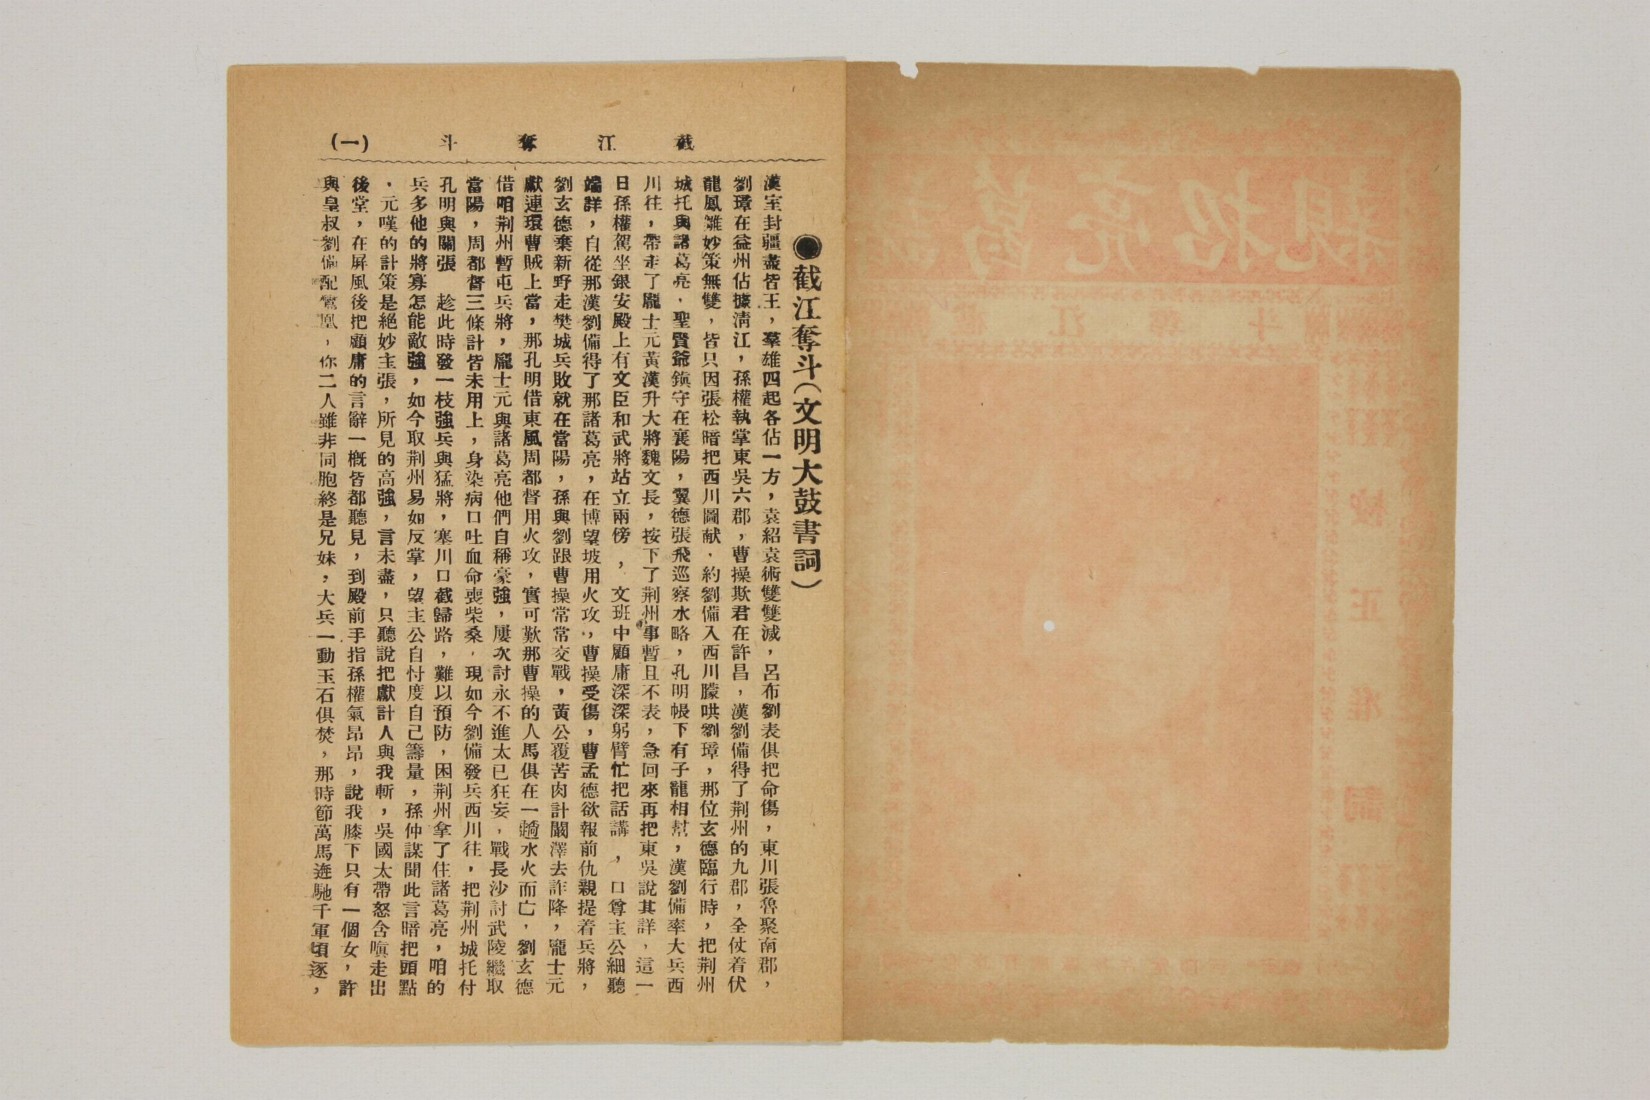 截江奪斗 (一)
●截江奪斗(文明大鼓書詞)
漢室封疆盡皆王，羣雄四起各佔一方，袁紹袁術雙雙滅，呂布劉表俱把命傷，東川張魯聚南郡，
劉璋在益州佔據淸江，孫權執掌東吳六郡，曹操欺君在許昌，漢劉備得了荆州的九郡，全仗着伏
龍鳳雛妙策無雙，皆只因張松暗把西川圖献．約劉備入西川朦哄劉璋，那位玄德臨行時，把荆州
城托與諸葛亮．聖賢爺鎭守在襄陽，翼德張飛巡察水略，孔明帳下有子龍相幫，漢劉備率大兵西
川往，帶走了龐士元黃漢升大將魏文長，按下了荆州事暫且不表，急回來再把東吳說其詳，這一
日孫權駕坐銀安殿上有文臣和武將站立兩傍，文班中顧庸深深躬臂忙把話講，口尊主公細聽
端詳，自從那漢劉備得了那諸葛亮，在博望坡用火攻，曹操受傷，曹孟德欲報前仇親提着兵將，
劉玄德棄新野走樊城兵敗就在當陽，孫與劉跟曹操常常交戰，黃公覆苦肉計闞澤去詐降，龐士元
獻連環曹賊上當，那孔明借東風周都督用火攻，實可歎那曹操的人馬俱在一趟水火而亡，劉玄德
借咱荆州暫屯兵將，龐士元與諸葛亮他們自稱豪強，屢次討永不進太已狂妄，戰長沙討武陵繼取
當陽，周都督三條計皆未用上，身染病口吐血命喪柴桑．現如今劉備發兵西川往，把荆州城托付
孔明與關張　趁此時發一枝強兵與猛將，寒川口截歸路，難以預防，困荆州拿了住諸葛亮，咱的
兵多他的將寡怎能敵強，如今取荆州易如反掌，望主公自忖度自己籌量，孫仲謀聞此言暗把頭點
，元嘆的計策是絕妙主張，所見的高強，言未盡，只聽說把獻計人與我斬，吳國太帶怒含嗔走出
後堂，在屏風後把顧庸的言辭一概皆都聽見，到殿前手指孫權氣昂昂，說我膝下只有一個女，許
與皇叔劉備配鸞凰，你二人雖非同胞終是兄妹，大兵一動玉石俱焚，那時節萬馬迸馳千軍頃逐，